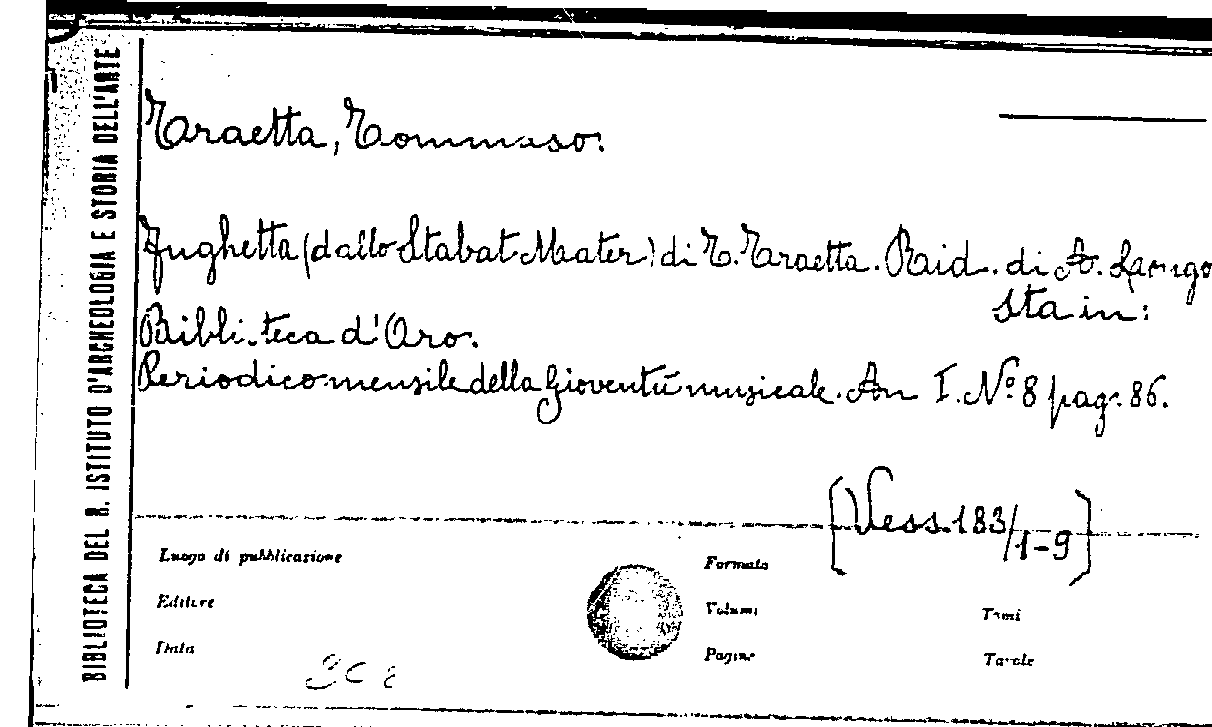 BIBLIOTECA DEL R. ISTITUTO D'ARCHEOLOGIA E STORIA DELL'ARTE
Traetta, Tommaso.
Fughetta (dallo Stabat Mater) di T. Traetta. Raid. di A. Longo
sta in:
Biblioteca d'Oro.
Periodico mensile della Gioventù musicale. An I. Nº 8 pag. 86.
[Vess. 183/1-9]
Luogo di pubblicazione
Formato
Editore
Volumi
Tomi
Data
Pagine
Tavole